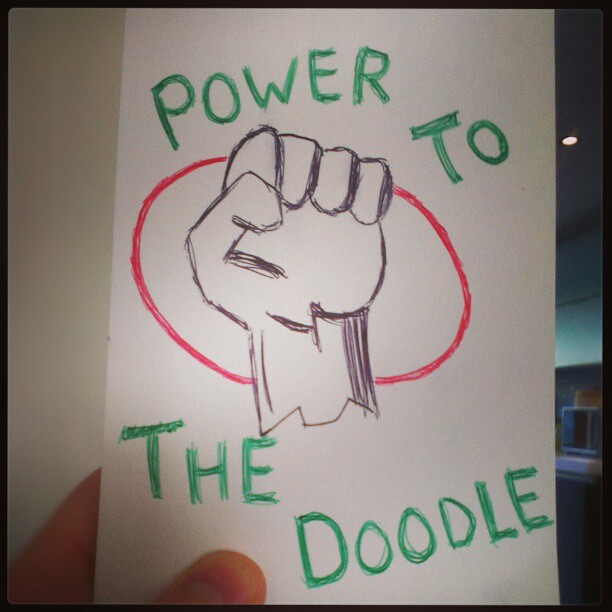 POWER TO
THE
DOODLE